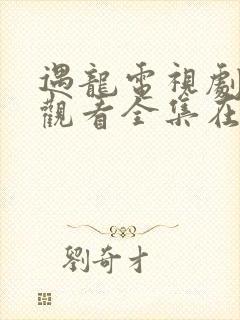 遇龍電視劇
觀看全集在
劉奇才